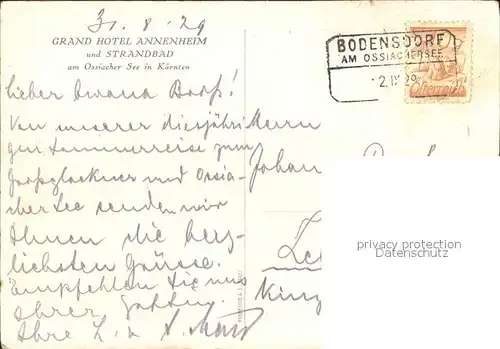 31. 8. 29
GRAND HOTEL ANNENHEIM
und STRANDBAD
am Ossiacher See in Kärnten
BODENSDORF
AM OSSIACHERSEE
2.IX.29
Lieber Bwana
Von unserer diesjähri-
gen Sommerreise zum
Grossglockner und Ossia-
cher See senden wir
Ihnen die herz-
lichsten Grüsse.
Empfehlen Sie uns
Ihrer Gattin.
Ihre
Herrn
Johan
privacy protection
Ansichtskarten-Center